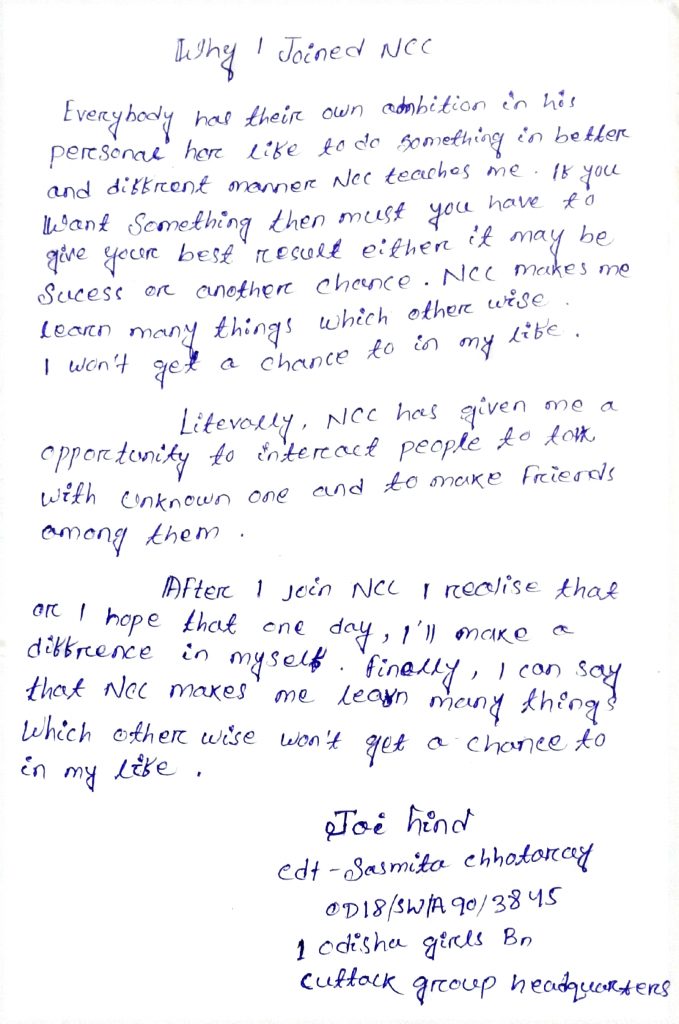 Why I Joined NCC
Everybody has their own ambition in his
personal here like to do something in better
and different manner NCC teaches me. If you
Want Something then must you have to
give your best result either it may be
Sucess or another chance. NCC makes me
learn many things which other wise.
I won't get a chance to in my life.
Literally, NCC has given me a
opportunity to interact people to talk
with unknown one and to make Friends
among them.
After I join NCC I realise that
or I hope that one day, I'll make a
difference in myself. finally, I can say
that NCC makes me learn many things
Which other wise won't get a chance to
in my life.
Jai hind
cdt - Sasmita chhotaray
OD18/SW/A90/3845
1 odisha girls Bn
Cuttack group headquarters